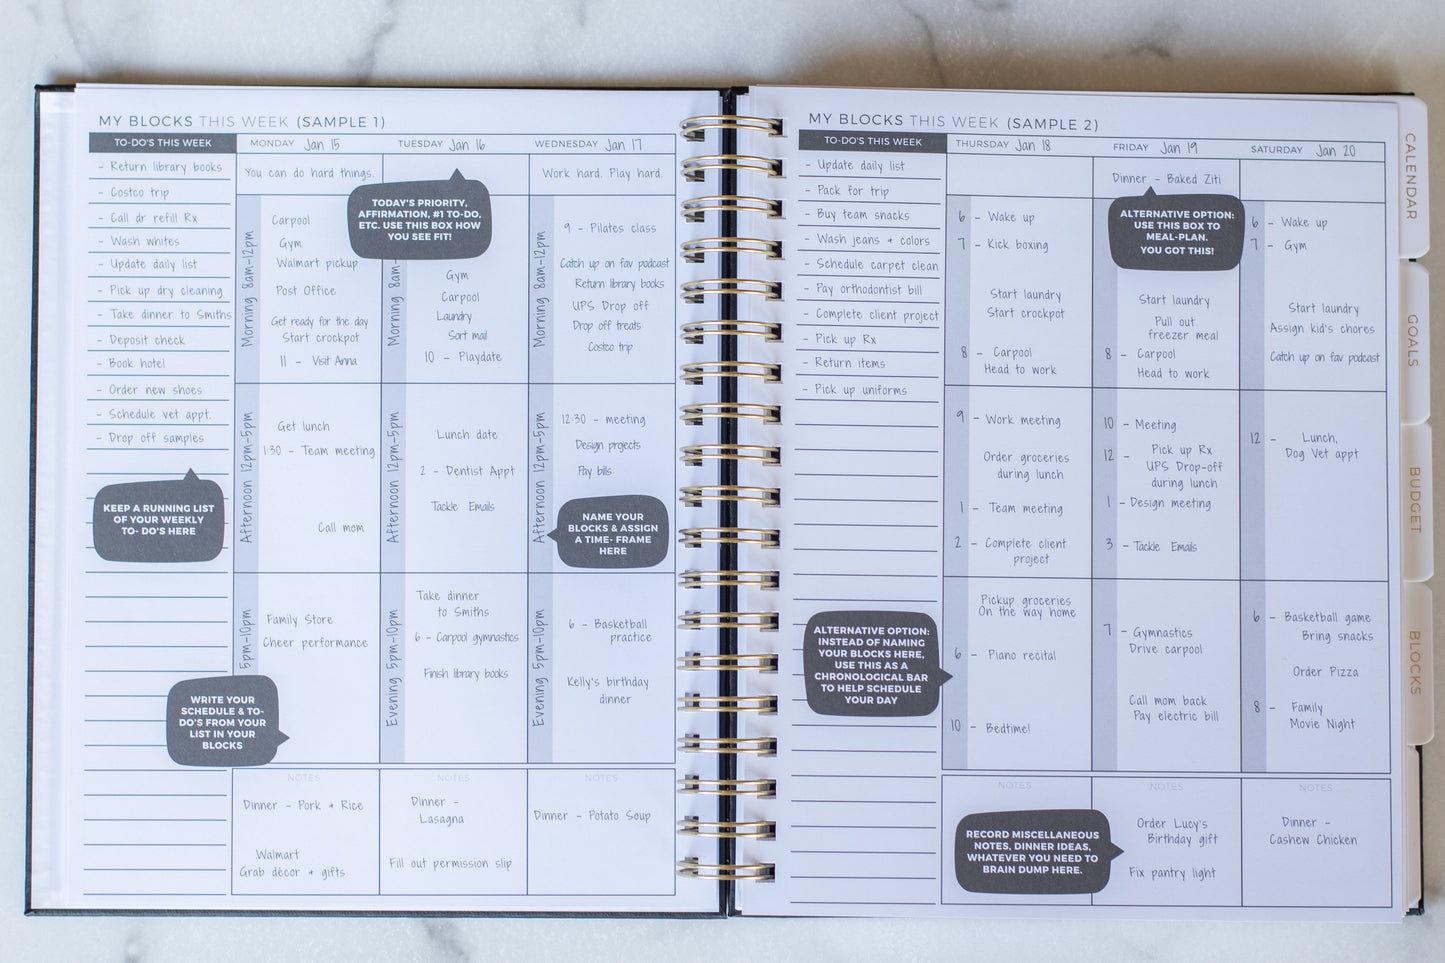 MY BLOCKS THIS WEEK (SAMPLE 1)
TO-DO'S THIS WEEK
- Return library books
- Costco trip
- Call dr refill Rx
- Wash whites
- Update daily list
- Pick up dry cleaning
- Take dinner to Smiths
- Deposit check
- Book hotel
- Order new shoes
- Schedule vet appt.
- Drop off samples
KEEP A RUNNING LIST
OF YOUR WEEKLY
TO- DO'S HERE
MONDAY Jan 15
You can do hard things.
Morning 8am-12pm
Carpool
Gym
Walmart pickup
Post Office
Get ready for the day
Start crockpot
11 - Visit Anna
Afternoon 12pm-5pm
Get lunch
1:30 - Team meeting
Call mom
5pm-10pm
Family Store
Cheer performance
WRITE YOUR
SCHEDULE & TO-
DO'S FROM YOUR
LIST IN YOUR
BLOCKS
NOTES
Dinner - Pork & Rice
Walmart
Grab décor & gifts
TUESDAY Jan 16
TODAY'S PRIORITY,
AFFIRMATION, #1 TO-DO,
ETC. USE THIS BOX HOW
YOU SEE FIT!
Morning 8am-
Gym
Carpool
Laundry
Sort mail
10 - Playdate
Afternoon 12pm-5pm
Lunch date
2 - Dentist Appt
Tackle Emails
Evening 5pm-10pm
Take dinner
to Smiths
6 - Carpool gymnastics
Finish library books
NOTES
Dinner -
Lasagna
Fill out permission slip
WEDNESDAY Jan 17
Work hard. Play hard.
Morning 8am-12pm
9 - Pilates class
Catch up on fav podcast
Return library books
UPS Drop off
Drop off treats
Costco trip
Afternoon 12pm-5pm
12:30 - meeting
Design projects
Pay bills
NAME YOUR
BLOCKS & ASSIGN
A TIME- FRAME
HERE
Evening 5pm-10pm
6 - Basketball
practice
Kelly's birthday
dinner
NOTES
Dinner - Potato Soup
MY BLOCKS THIS WEEK (SAMPLE 2)
TO-DO'S THIS WEEK
- Update daily list
- Pack for trip
- Buy team snacks
- Wash jeans & colors
- Schedule carpet clean
- Pay orthodontist bill
- Complete client project
- Pick up Rx
- Return items
- Pick up uniforms
ALTERNATIVE OPTION:
INSTEAD OF NAMING
YOUR BLOCKS HERE,
USE THIS AS A
CHRONOLOGICAL BAR
TO HELP SCHEDULE
YOUR DAY
THURSDAY Jan 18
6 - Wake up
7 - Kick boxing
Start laundry
Start crockpot
8 - Carpool
Head to work
9 - Work meeting
Order groceries
during lunch
1 - Team meeting
2 - Complete client
project
Pickup groceries
On the way home
6 - Piano recital
10 - Bedtime!
NOTES
RECORD MISCELLANEOUS
NOTES, DINNER IDEAS,
WHATEVER YOU NEED TO
BRAIN DUMP HERE.
FRIDAY Jan 19
Dinner - Baked Ziti
ALTERNATIVE OPTION:
USE THIS BOX TO
MEAL-PLAN.
YOU GOT THIS!
Start laundry
Pull out
freezer meal
8 - Carpool
Head to work
10 - Meeting
12 - Pick up Rx
UPS Drop-off
during lunch
1 - Design meeting
3 - Tackle Emails
7 - Gymnastics
Drive carpool
Call mom back
Pay electric bill
NOTES
Order Lucy's
Birthday gift
Fix pantry light
SATURDAY Jan 20
6 - Wake up
7 - Gym
Start laundry
Assign kid's chores
Catch up on fav podcast
12 - Lunch,
Dog Vet appt
6 - Basketball game
Bring snacks
Order Pizza
8 - Family
Movie Night
NOTES
Dinner -
Cashew Chicken
CALENDAR
GOALS
BUDGET
BLOCKS